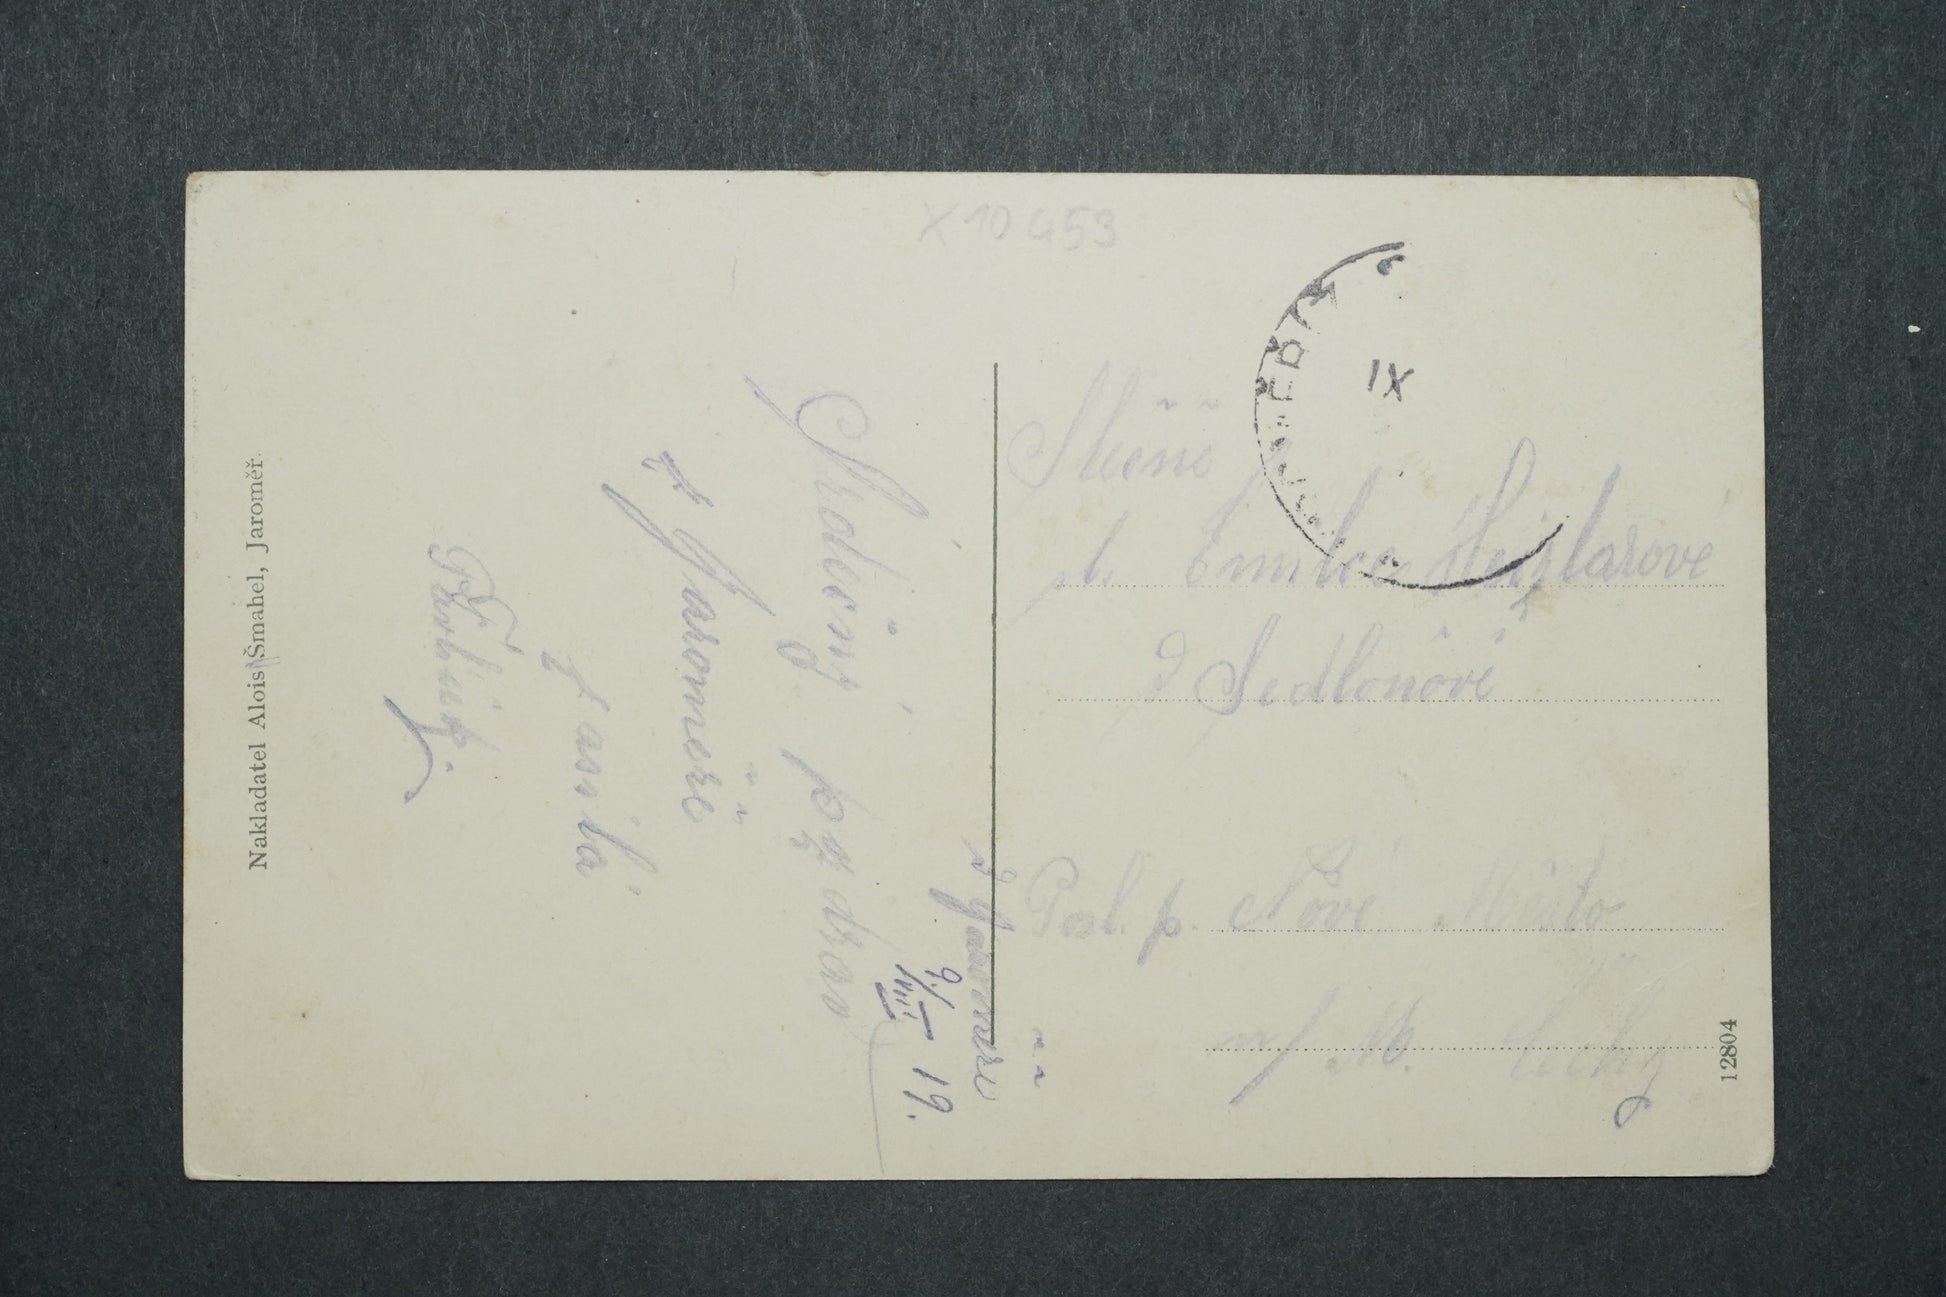 X 10453
IX
V Jaroměři
9./VIII 19.
Srdečný pozdrav
z Jaroměře
zasílá
Slečně
sl. Emilce
v Sedloňově
Posl. p. Nové Město
n/M. Čechy
Nakladatel Alois Šmahel, Jaroměř.
12804